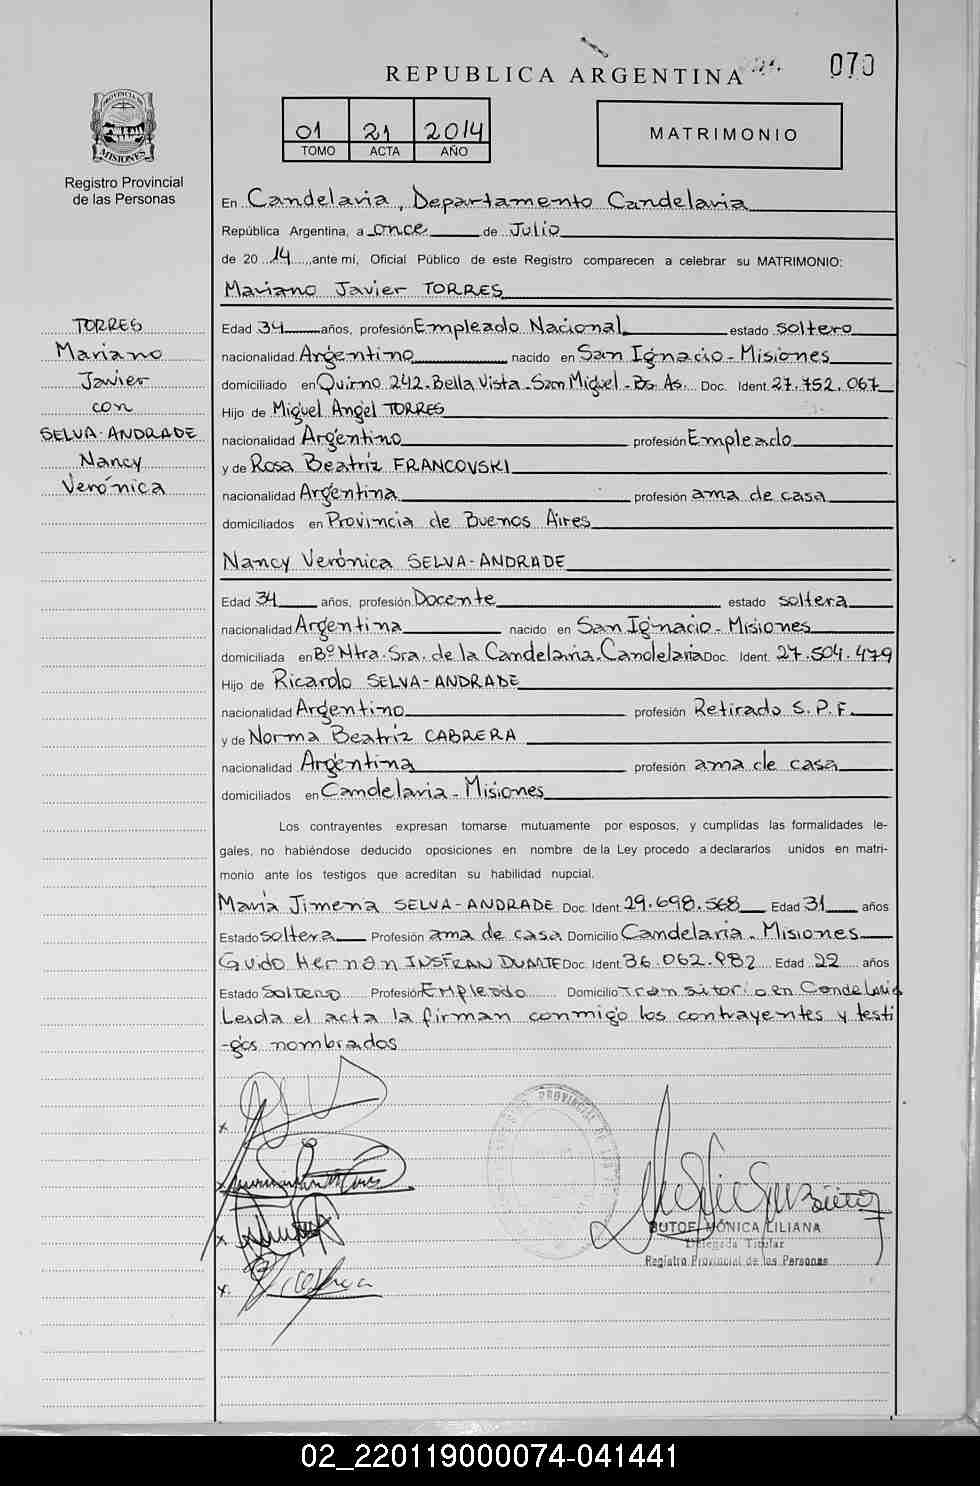 REPUBLICA ARGENTINA
070
01 21 2014
TOMO ACTA AÑO
MATRIMONIO
PROVINCIA DE
MISIONES
Registro Provincial
de las Personas
TORRES
Mariano
Javier
con
SELVA-ANDRADE
Nancy
Verónica
En Candelaria, Departamento Candelaria
República Argentina, a once de Julio
de 20 14, ante mí, Oficial Público de este Registro comparecen a celebrar su MATRIMONIO:
Mariano Javier TORRES
Edad 34 años, profesión Empleado Nacional estado soltero
nacionalidad Argentino nacido en San Ignacio - Misiones
domiciliado en Quirno 242-Bella Vista-San Miguel-Bs. As. Doc. Ident. 27.752.067
Hijo de Miguel Angel TORRES
nacionalidad Argentino profesión Empleado
y de Rosa Beatriz FRANCOVSKI
nacionalidad Argentina profesión ama de casa
domiciliados en Provincia de Buenos Aires
Nancy Verónica SELVA-ANDRADE
Edad 34 años, profesión Docente estado soltera
nacionalidad Argentina nacido en San Ignacio - Misiones
domiciliada en Bº Ntra. Sra. de la Candelaria-Candelaria Doc. Ident. 27.504.479
Hijo de Ricardo SELVA-ANDRADE
nacionalidad Argentino profesión Retirado S.P.F.
y de Norma Beatriz CABRERA
nacionalidad Argentina profesión ama de casa
domiciliados en Candelaria - Misiones
Los contrayentes expresan tomarse mutuamente por esposos, y cumplidas las formalidades le-
gales, no habiéndose deducido oposiciones en nombre de la Ley procedo a declararlos unidos en matri-
monio ante los testigos que acreditan su habilidad nupcial.
María Jimena SELVA-ANDRADE Doc. Ident. 29.698.568 Edad 31 años
Estado soltera Profesión ama de casa Domicilio Candelaria - Misiones
Guido Hernán INSFRAN DUARTE Doc. Ident. 36.062.982 Edad 22 años
Estado Soltero Profesión Empleado Domicilio transitorio en Candelaria
Leída el acta la firman conmigo los contrayentes y testi
-gos nombrados
BUTOF MÓNICA LILIANA
Delegada Titular
Registro Provincial de las Personas
02_220119000074-041441